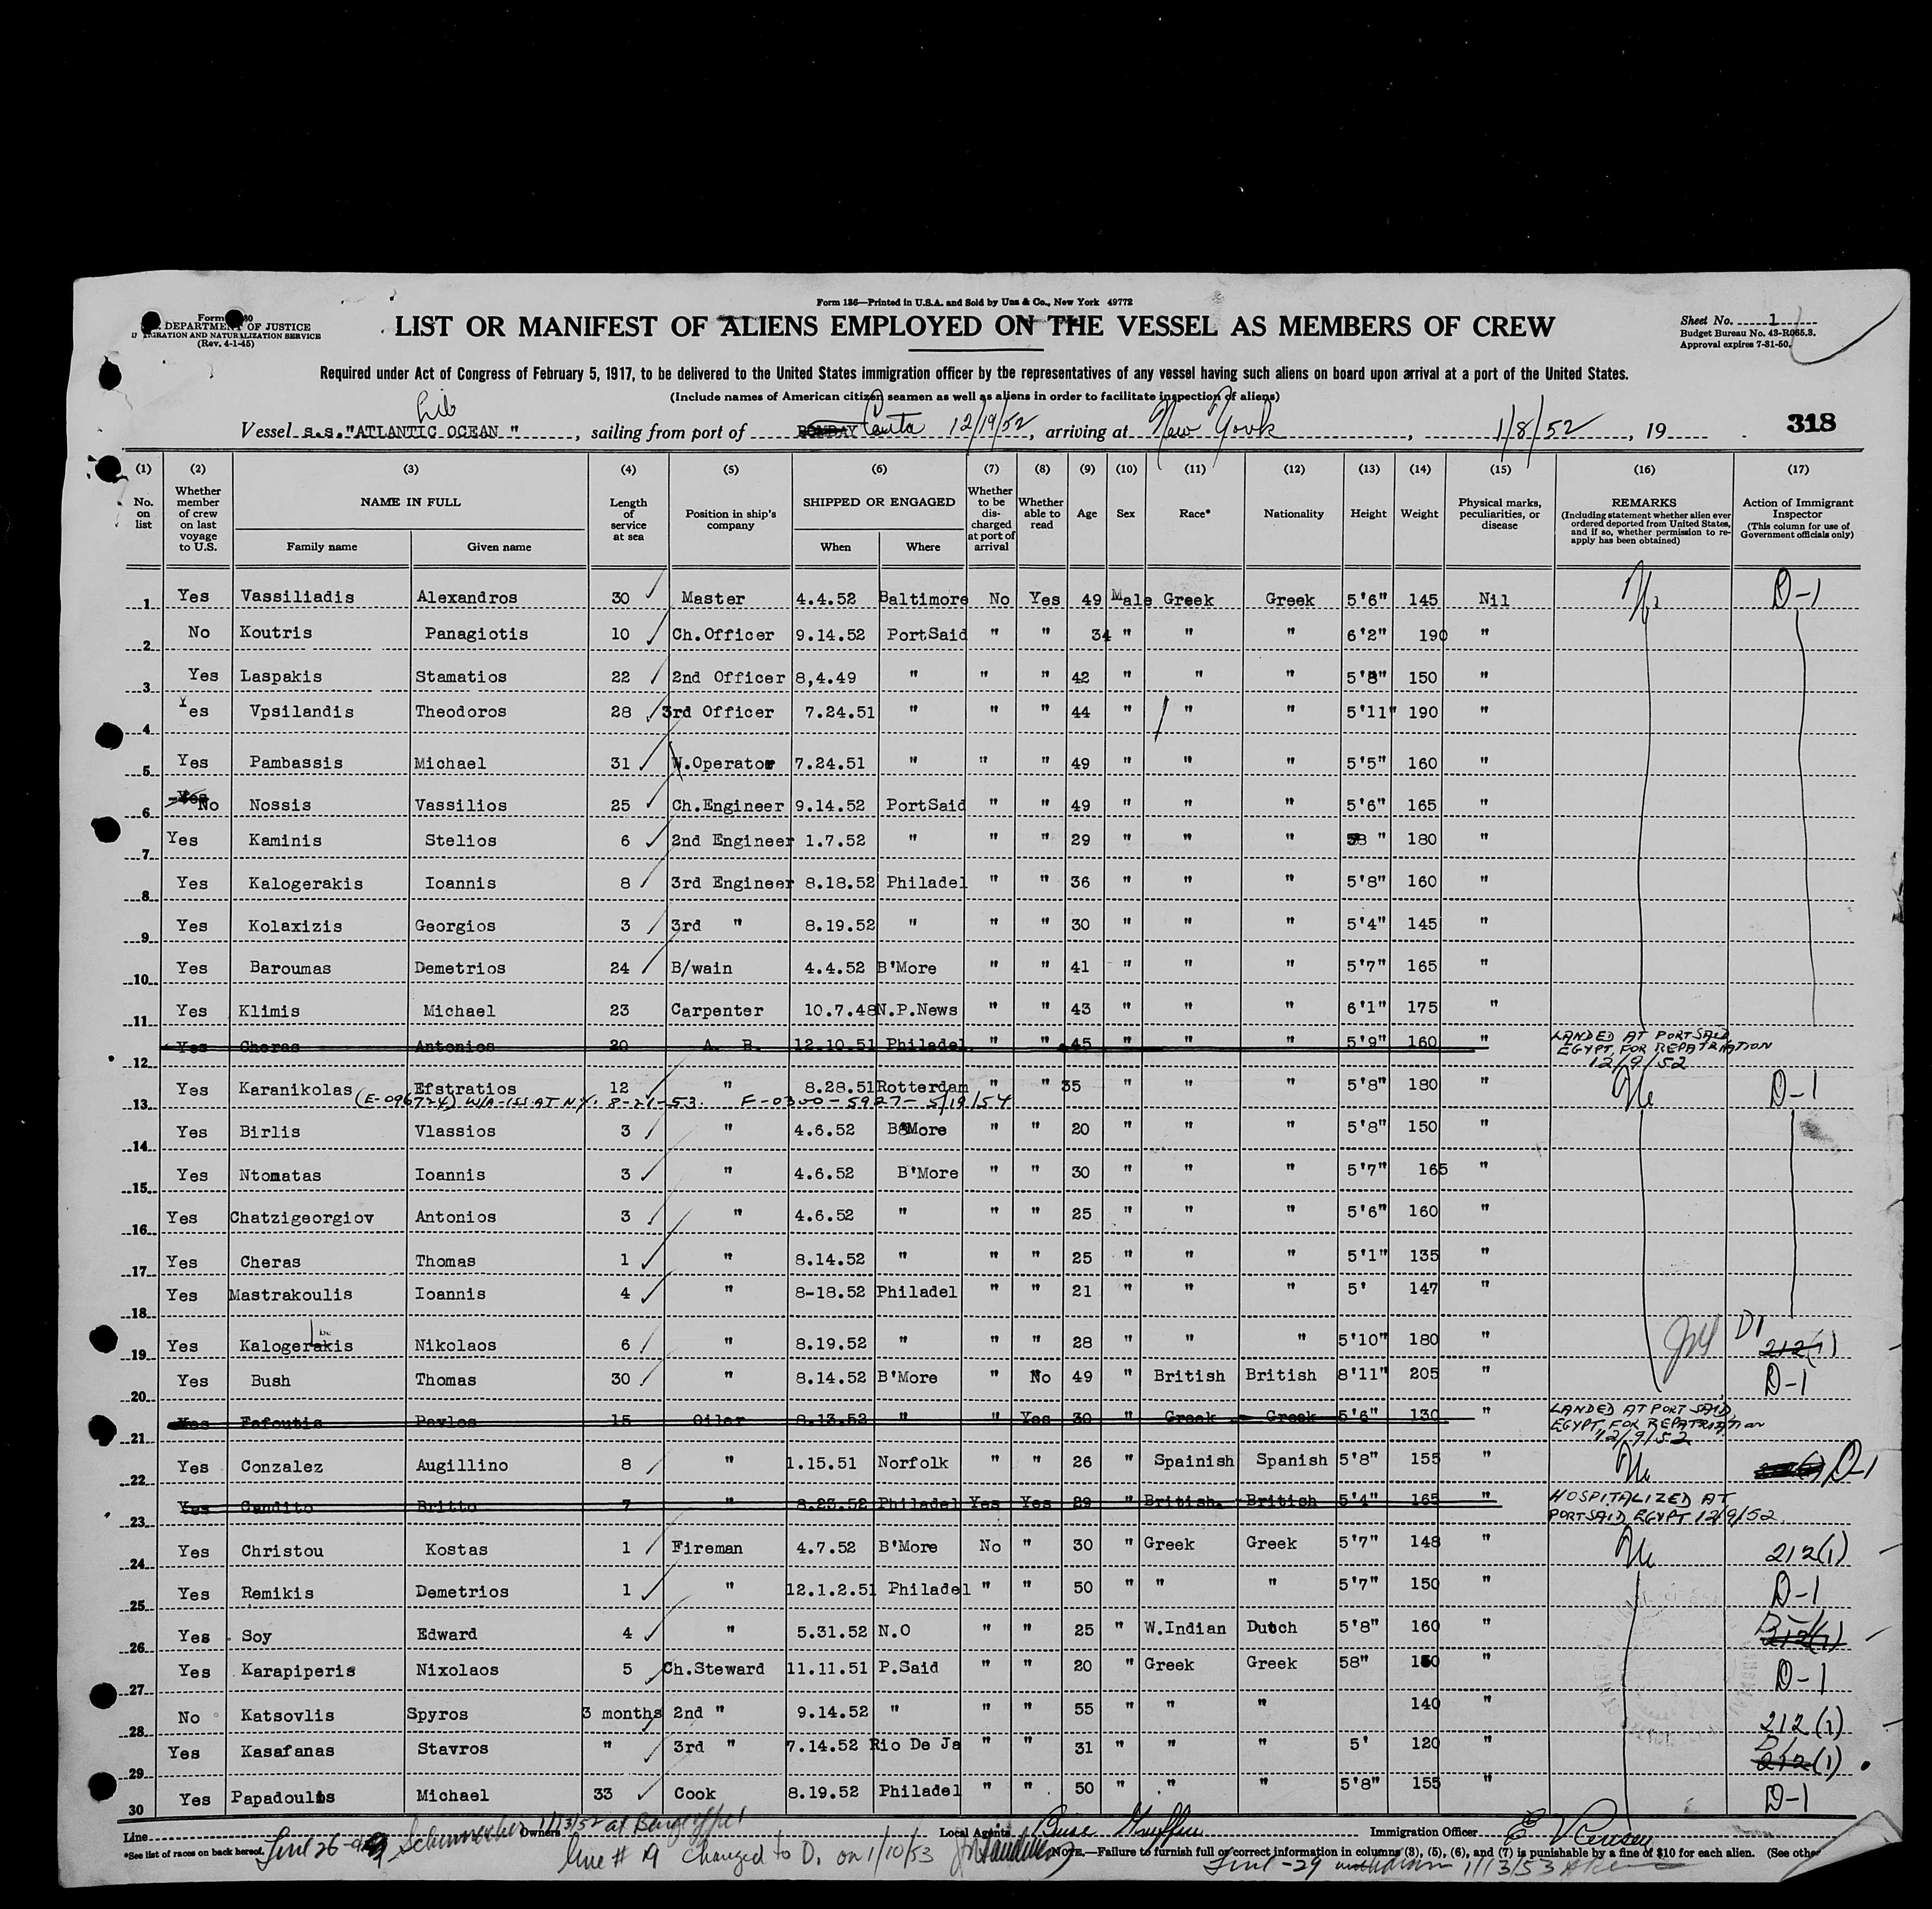 Form 136—Printed in U.S.A. and Sold by Unz & Co., New York 49772
DEPARTMENT OF JUSTICE
IGRATION AND NATURALIZATION SERVICE
(Rev. 4-1-45)
LIST OR MANIFEST OF ALIENS EMPLOYED ON THE VESSEL AS MEMBERS OF CREW
Sheet No. 1
Budget Bureau No. 43-R065.3.
Approval expires 7-31-50.
Required under Act of Congress of February 5, 1917, to be delivered to the United States immigration officer by the representatives of any vessel having such aliens on board upon arrival at a port of the United States.
(Include names of American citizen seamen as well as aliens in order to facilitate inspection of aliens)
Lib
Vessel s.s. "ATLANTIC OCEAN ", sailing from port of BOMBAY Ceuta 12/19/52, arriving at New York, 1/8/52, 19 318
(1) (2) (3) (4) (5) (6) (7) (8) (9) (10) (11) (12) (13) (14) (15) (16) (17)
No. on list Whether member of crew on last voyage to U.S. NAME IN FULL Family name Given name Length of service at sea Position in ship's company SHIPPED OR ENGAGED When Where Whether to be discharged at port of arrival Whether able to read Age Sex Race* Nationality Height Weight Physical marks, peculiarities, or disease REMARKS (Including statement whether alien ever ordered deported from United States, and if so, whether permission to re-apply has been obtained) Action of Immigrant Inspector (This column for use of Government officials only)
1 Yes Vassiliadis Alexandros 30 Master 4.4.52 Baltimore No Yes 49 Male Greek Greek 5'6" 145 Nil D-1
2 No Koutris Panagiotis 10 Ch.Officer 9.14.52 PortSaid " " 34 " " " 6'2" 190 "
3 Yes Laspakis Stamatios 22 2nd Officer 8,4.49 " " " 42 " " " 5'8" 150 "
4 Yes Vpsilandis Theodoros 28 3rd Officer 7.24.51 " " " 44 " " " 5'11" 190 "
5 Yes Pambassis Michael 31 W.Operator 7.24.51 " " " 49 " " " 5'5" 160 "
6 Yes No Nossis Vassilios 25 Ch.Engineer 9.14.52 PortSaid " " 49 " " " 5'6" 165 "
7 Yes Kaminis Stelios 6 2nd Engineer 1.7.52 " " " 29 " " " 58 " 180 "
8 Yes Kalogerakis Ioannis 8 3rd Engineer 8.18.52 Philadel " " 36 " " " 5'8" 160 "
9 Yes Kolaxizis Georgios 3 3rd " 8.19.52 " " " 30 " " " 5'4" 145 "
10 Yes Baroumas Demetrios 24 B/wain 4.4.52 B'More " " 41 " " " 5'7" 165 "
11 Yes Klimis Michael 23 Carpenter 10.7.48 N.P.News " " 43 " " " 6'1" 175 "
12 Yes Cheras Antonios 20 A. B. 12.10.51 Philadel. " " 45 " " " 5'9" 160 " LANDED AT PORT SAID, EGYPT, FOR REPATRIATION 12/9/52
13 Yes Karanikolas Efstratios 12 " 8.28.51 Rotterdam " " 35 " " " 5'8" 180 " D-1
(E-096724) W/A-ISS AT N.Y. 8-21-53. F-0300-5927- 5/19/54
14 Yes Birlis Vlassios 3 " 4.6.52 B'More " " 20 " " " 5'8" 150 "
15 Yes Ntomatas Ioannis 3 " 4.6.52 B'More " " 30 " " " 5'7" 165 "
16 Yes Chatzigeorgiov Antonios 3 " 4.6.52 " " " 25 " " " 5'6" 160 "
17 Yes Cheras Thomas 1 " 8.14.52 " " " 25 " " " 5'1" 135 "
18 Yes Mastrakoulis Ioannis 4 " 8-18.52 Philadel " " 21 " " " 5' 147 "
19 Yes Kalogerakis Nikolaos 6 " 8.19.52 " " " 28 " " " 5'10" 180 " D1 212(1)
20 Yes Bush Thomas 30 " 8.14.52 B'More " No 49 " British British 8'11" 205 " D-1
21 Yes Fafoutis Pavlos 15 Oiler 8.13.52 " " Yes 30 " Greek Greek 5'6" 130 " LANDED AT PORT SAID, EGYPT, FOR REPATRIATION 12/9/52
22 Yes Conzalez Augillino 8 " 1.15.51 Norfolk " " 26 " Spainish Spanish 5'8" 155 " D-1
23 Yes Candito Britto 7 " 8.23.52 Philadel Yes Yes 29 " British. British 5'4" 165 " HOSPITALIZED AT PORT SAID, EGYPT 12/9/52.
24 Yes Christou Kostas 1 Fireman 4.7.52 B'More No " 30 " Greek Greek 5'7" 148 " 212(1)
25 Yes Remikis Demetrios 1 " 12.1.2.51 Philadel " " 50 " " " 5'7" 150 " D-1
26 Yes Soy Edward 4 " 5.31.52 N.O " " 25 " W.Indian Dutch 5'8" 160 " D-1 212(1)
27 Yes Karapiperis Nixolaos 5 Ch.Steward 11.11.51 P.Said " " 20 " Greek Greek 58" 150 " D-1
28 No Katsovlis Spyros 3 months 2nd " 9.14.52 " " " 55 " " " 140 " 212(1)
29 Yes Kasafanas Stavros " 3rd " 7.14.52 Rio De Ja " " 31 " " " 5' 120 " D1 212(1)
30 Yes Papadoulis Michael 33 Cook 8.19.52 Philadel " " 50 " " " 5'8" 155 " D-1
Line Owners Local Agents Immigration Officer
*See list of races on back hereof.
Line 26- 1/13/52 at
Line # 19 changed to D. on 1/10/53
NOTE.—Failure to furnish full or correct information in columns (3), (5), (6), and (7) is punishable by a fine of $10 for each alien. (See othe
Line -29 withdrawn 1/13/53